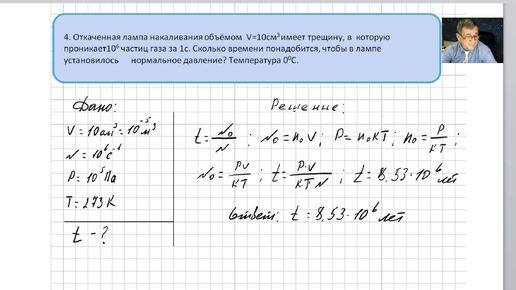 4. Откаченная лампа накаливания объёмом V=10см³ имеет трещину, в которую
проникает10⁶ частиц газа за 1с. Сколько времени понадобится, чтобы в лампе
установилось нормальное давление? Температура 0⁰С.
Дано:
V = 10 см³ = 10⁻⁵ м³
N = 10⁶ с⁻¹
P = 10⁵ Па
T = 273 К
t - ?
Решение:
t = N₀/N ; N₀ = n₀V ; P = n₀KT ; n₀ = P/KT ;
N₀ = PV/KT ; t = P·V/KTN ; t = 8,53·10⁶ лет
Ответ: t = 8,53·10⁶ лет